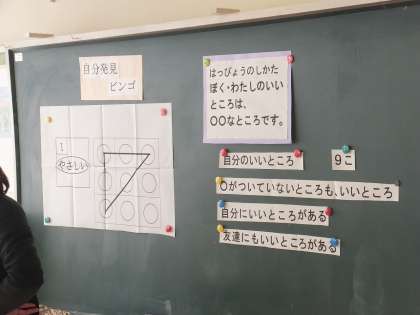 自分発見
ビンゴ
1
やさしい
はっぴょうのしかた
ぼく・わたしのいい
ところは、
〇〇なところです。
自分のいいところ
9こ
〇がついていないところも、いいところ
自分にいいところがある
友達にもいいところがある